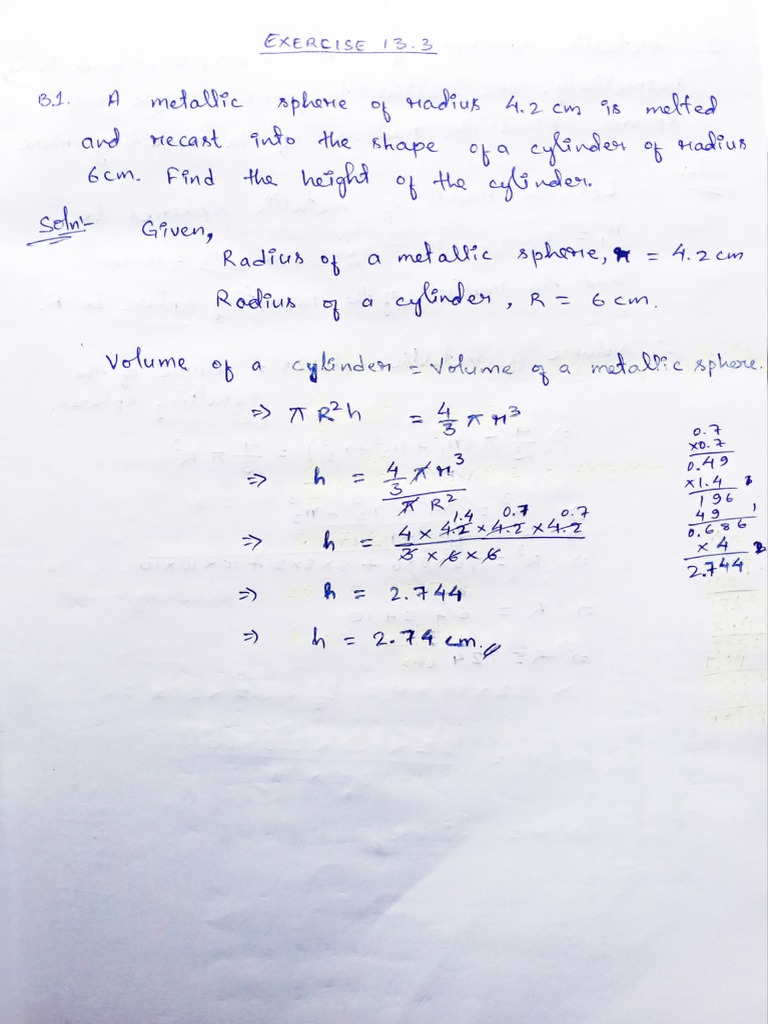 EXERCISE 13.3
B.1. A metallic sphere of radius 4.2 cm is melted
and recast into the shape of a cylinder of radius
6cm. Find the height of the cylinder.
Soln:- Given,
Radius of a metallic sphere, r = 4.2 cm
Radius of a cylinder, R = 6 cm.
Volume of a cylinder = Volume of a metallic sphere.
⇒ π R²h = 4/3 π r³
⇒ h = (4/3 π r³)/(π R²)
1.4 0.7 0.7
⇒ h = (4 × 4.2 × 4.2 × 4.2)/(3 × 6 × 6)
⇒ h = 2.744
⇒ h = 2.74 cm.
0.7
×0.7
0.49
×1.4
196
49
0.686
×4
2.744